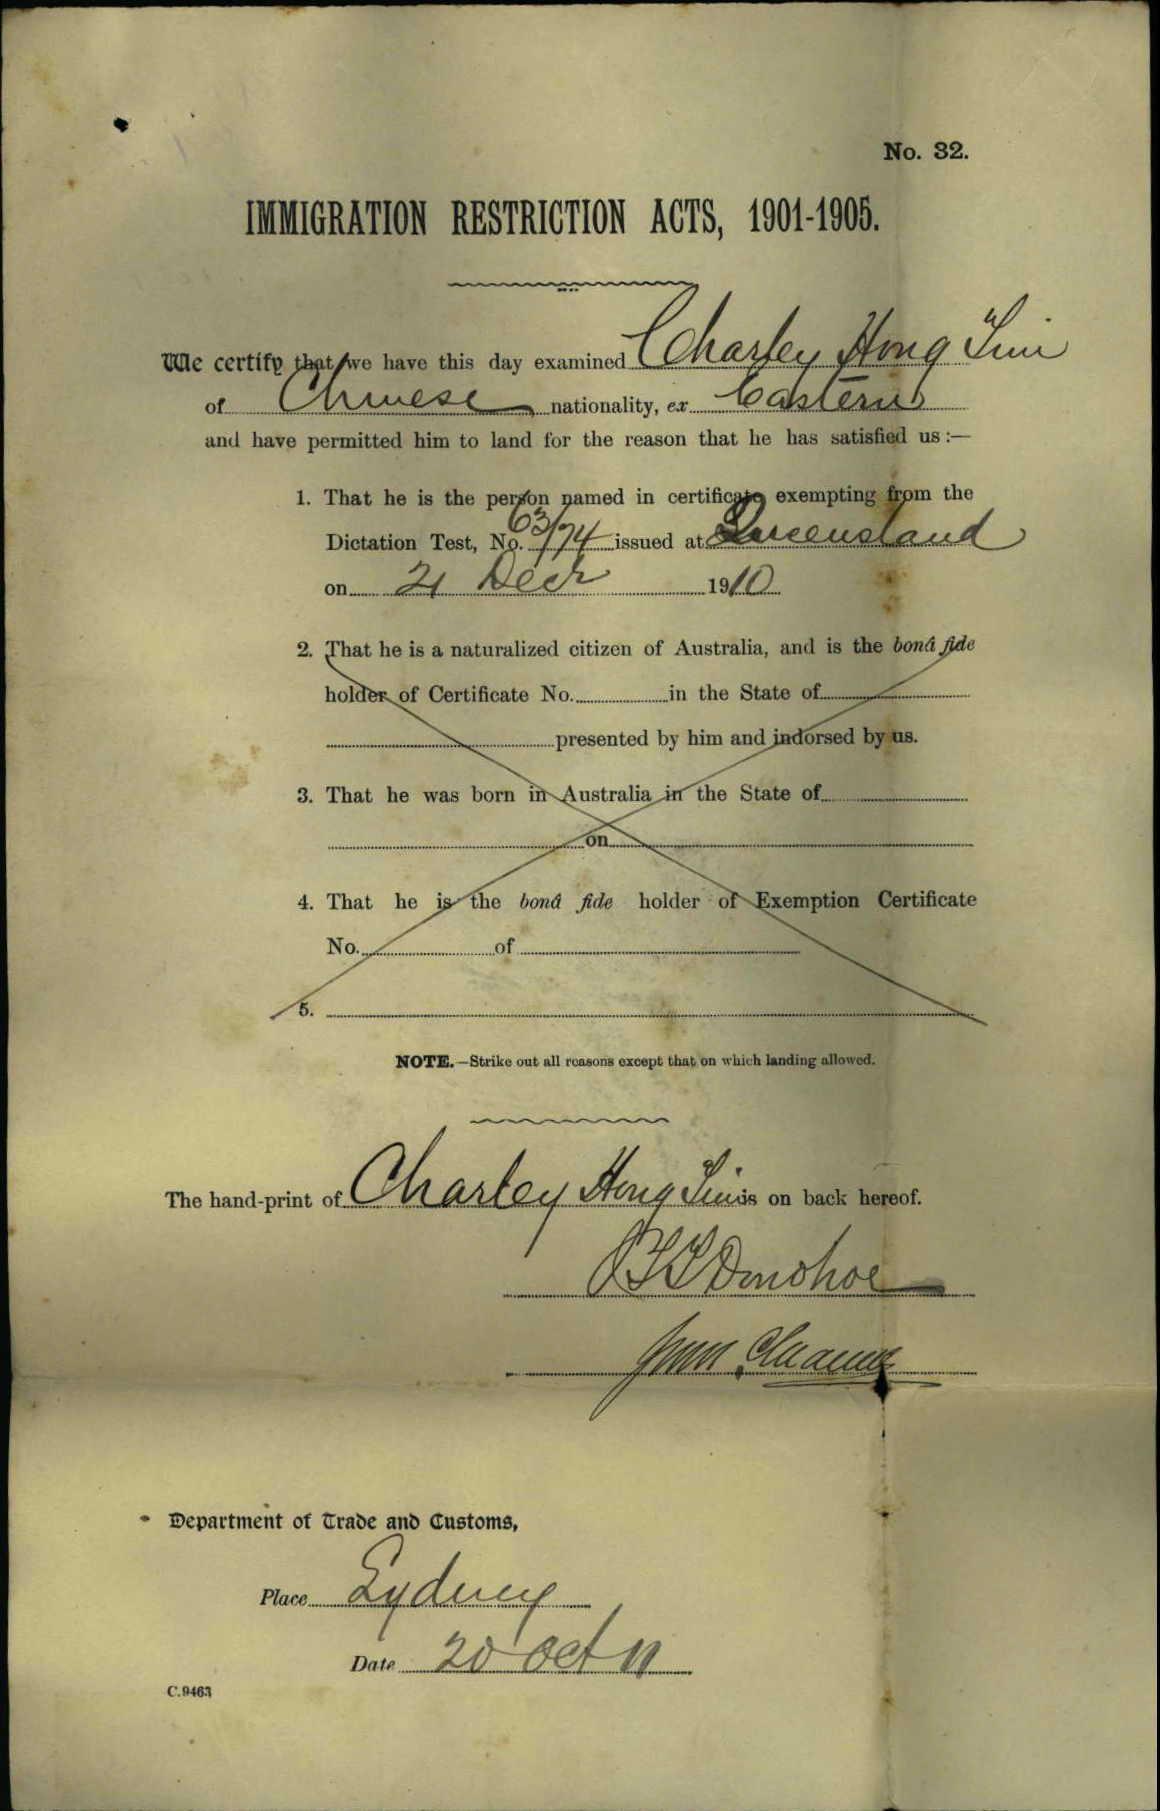 No. 32.
IMMIGRATION RESTRICTION ACTS, 1901-1905.
We certify that we have this day examined Charley Hong
of Chinese nationality, ex Eastern
and have permitted him to land for the reason that he has satisfied us :—
1. That he is the person named in certificate exempting from the
Dictation Test, No. 63/74 issued at Queensland
on 21 Decr 1910
2. That he is a naturalized citizen of Australia, and is the bonâ fide
holder of Certificate No. in the State of
presented by him and indorsed by us.
3. That he was born in Australia in the State of
on
4. That he is the bonâ fide holder of Exemption Certificate
No. of
5.
NOTE.—Strike out all reasons except that on which landing allowed.
The hand-print of Charley Hong is on back hereof.
Donohoe
Department of Trade and Customs,
Place Sydney
Date 20 Oct 11
C.9463